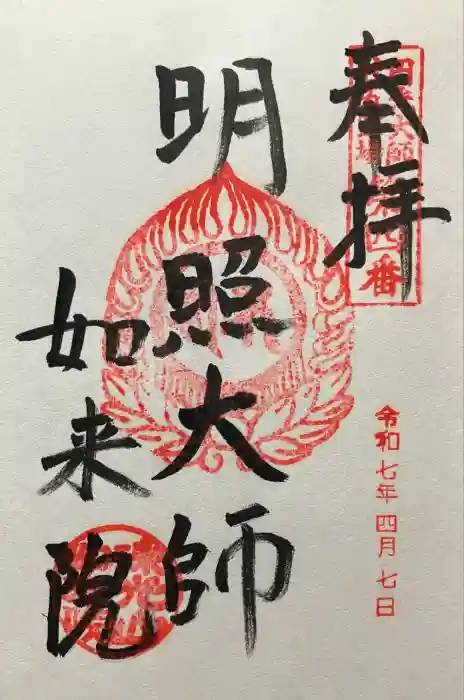 奉拝
四番
令和七年四月七日
明照大師
如来院